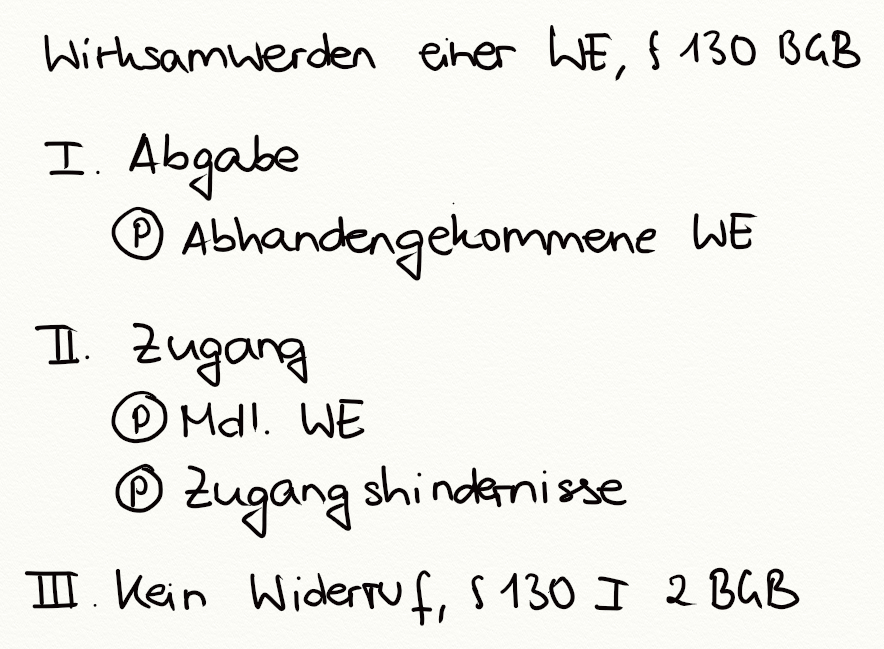 Wirksamwerden einer WE, § 130 BGB
I. Abgabe
Ⓟ Abhandengekommene WE
II. Zugang
Ⓟ Mdl. WE
Ⓟ Zugangshindernisse
III. Kein Widerruf, § 130 I 2 BGB